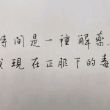 時間是一種解藥
我現在正服下的毒